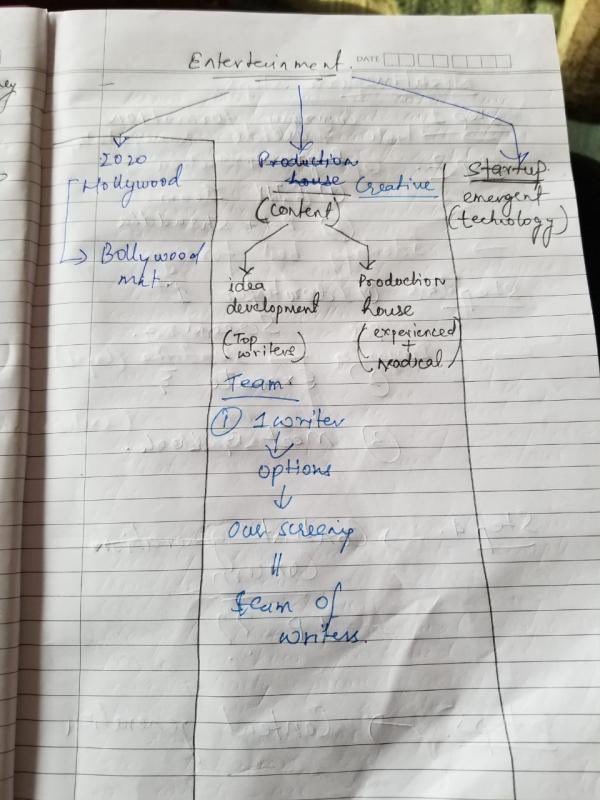 Entertainment.
DATE
2020
Hollywood
Bollywood
mkt.
Production
house
Creative
(content)
idea
development
(Top
writers)
Production
house
(experienced
+
Neodical)
Team:
① 1 writer
options
Our screenig
||
team of
writers.
Startup.
emergent
(techology)